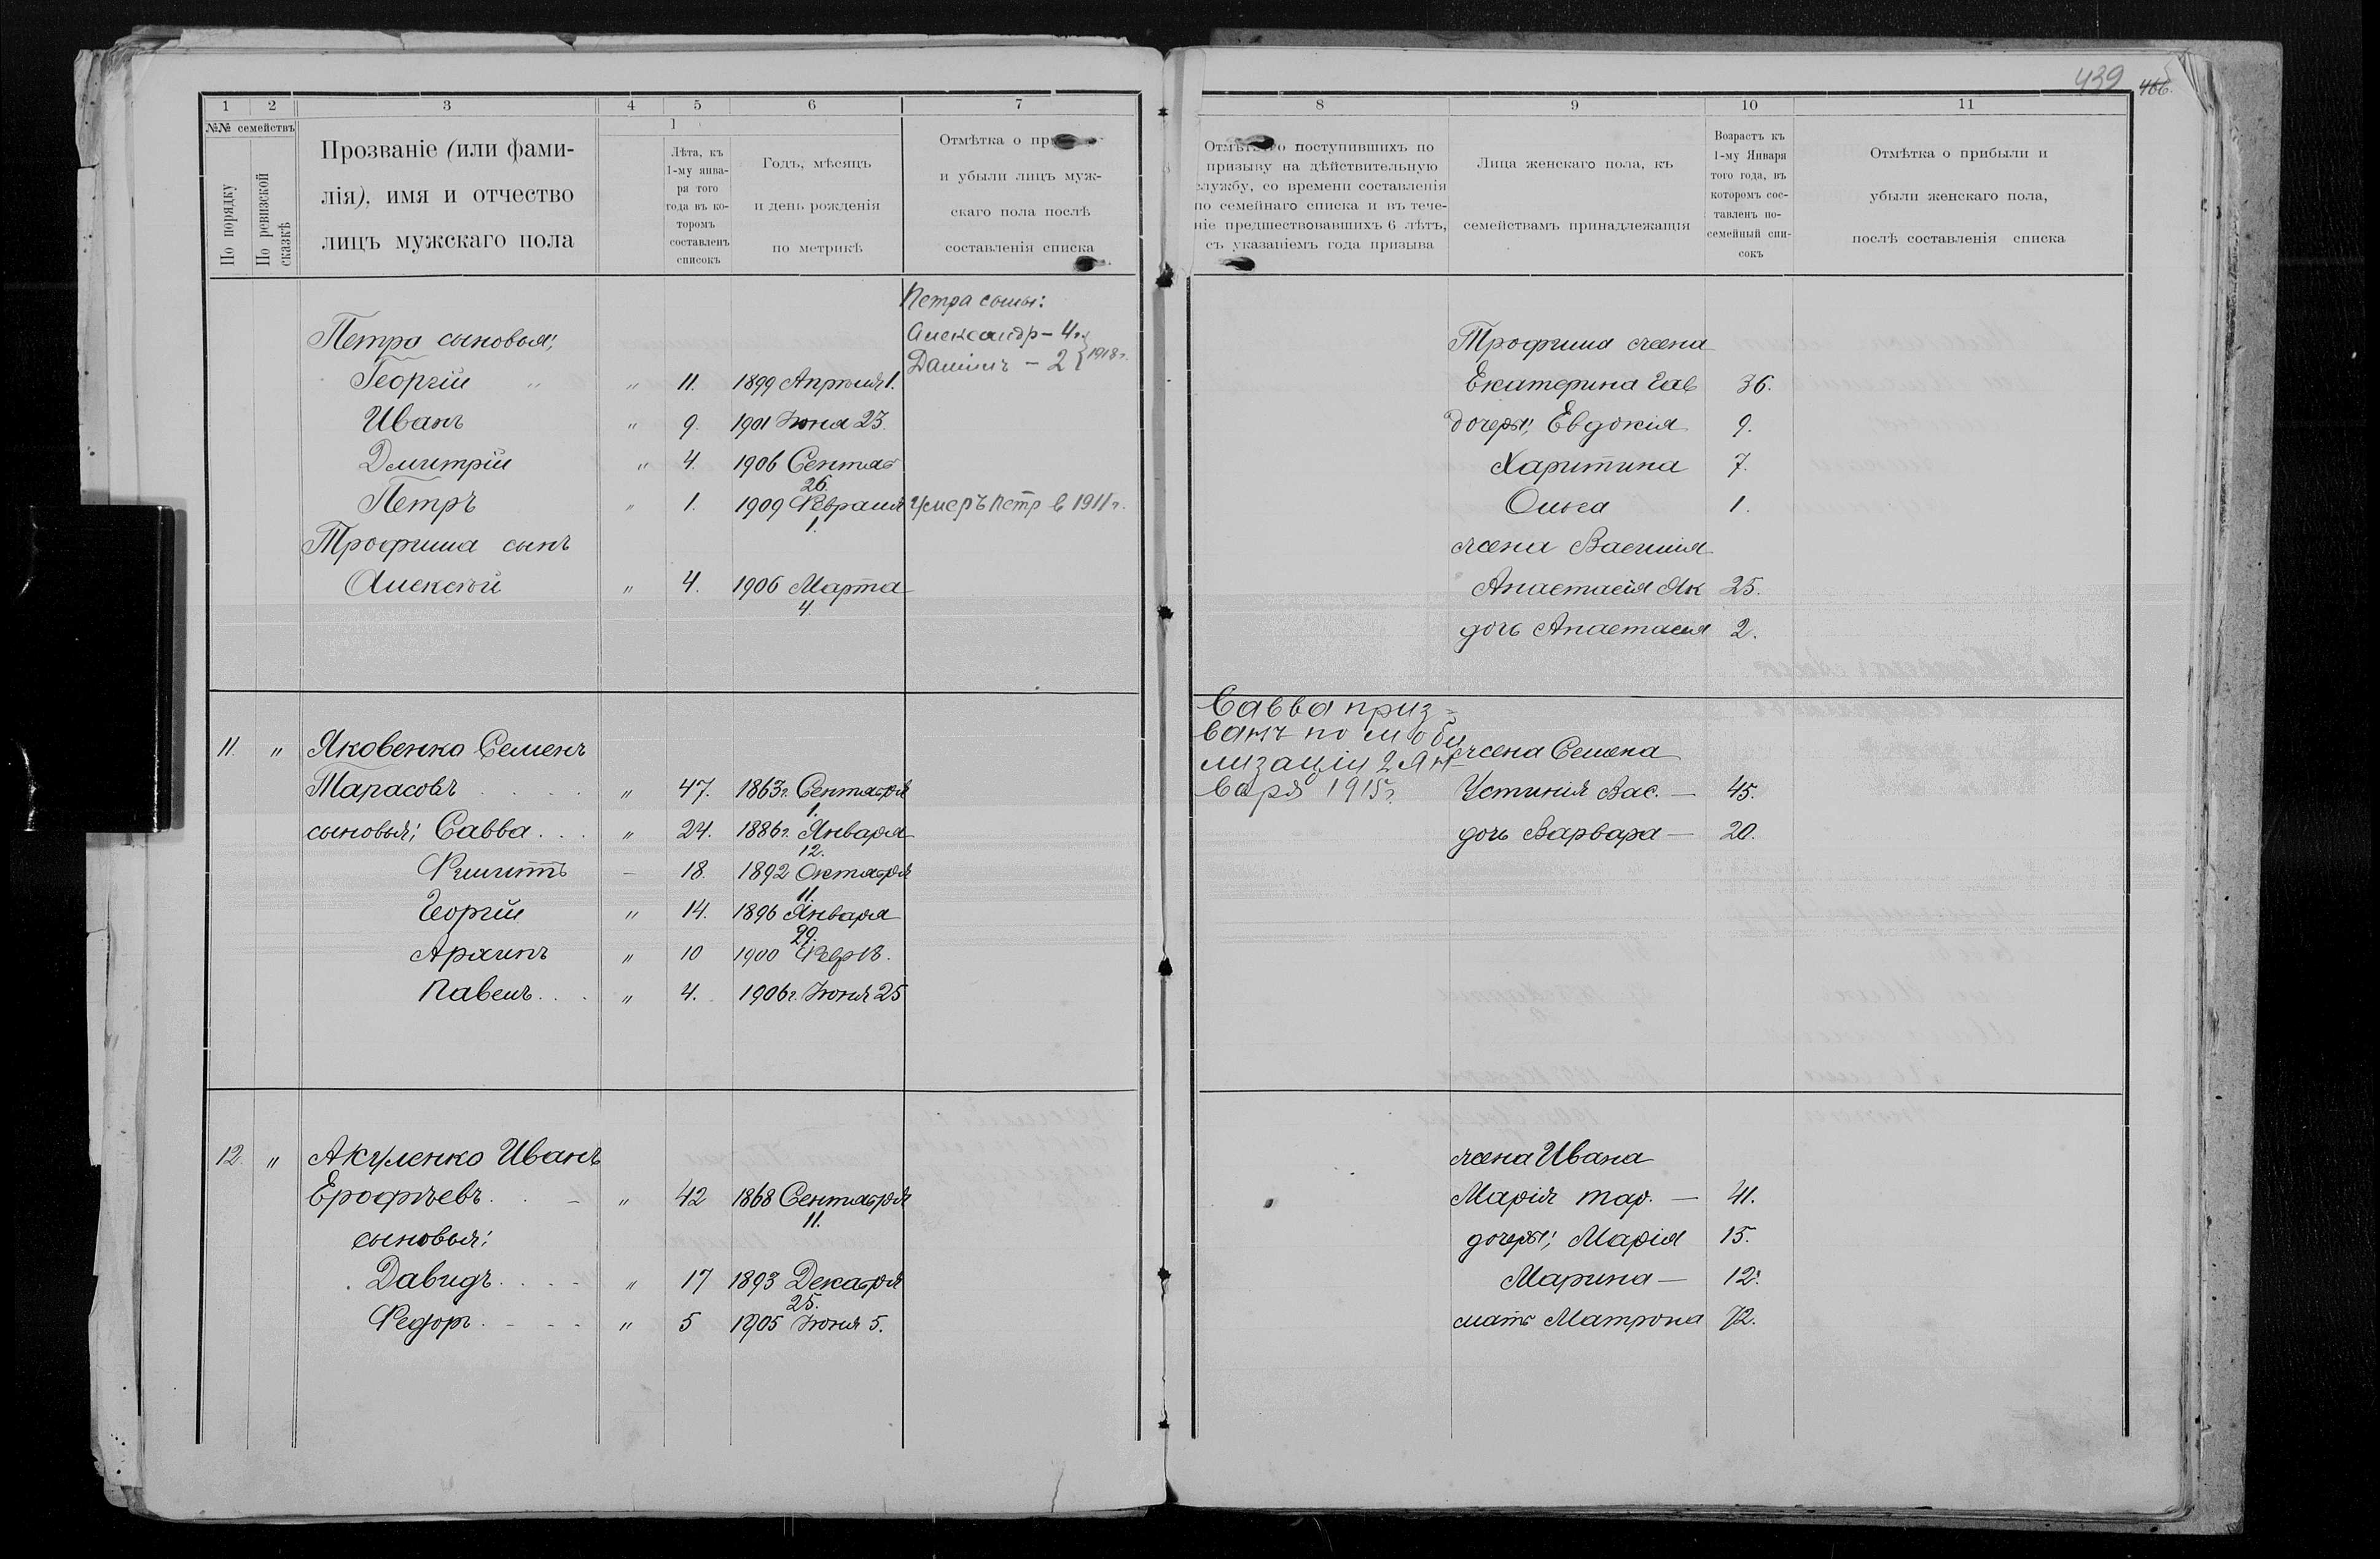 439 466.
1 2 3 4 5 6 7
№№ семействъ
По порядку
По ревизской сказкѣ
Прозваніе (или фами-
лія), имя и отчество
лицъ мужскаго пола
1
Лѣта, къ
1-му янва-
ря того
года въ ко-
торомъ
составленъ
списокъ
Годъ, мѣсяцъ
и день рожденія
по метрикѣ
Отмѣтка о
и убыли лицъ муж-
скаго пола послѣ
составленія списка
Петра сыны:
Александр – 4 г.
Даніилъ – 2 } 1918 г.
Петра сыновья;
Георгій " " 11. 1899 Апрѣля 1.
Иванъ " 9. 1901 Іюня 23.
Дмитрій " 4. 1906 Сентяб
26.
Петръ " 1. 1909 Февраля Умеръ Петр в 1911 г.
1.
Трофима сынъ
Алексѣй " 4. 1906 Марта
4.
11. " Яковенко Семенъ
Тарасовъ " 47. 1863 г. Сентября
1.
сыновья; Савва " 24. 1886 г. Января
12.
Филиппъ – 18. 1892 Октября
11.
Георгій " 14. 1896 Января
29.
Архипъ " 10 1900 Февр 18.
Павелъ " 4. 1906 г. Іюня 25
12. " Акуленко Иванъ
Ерофѣевъ " 42 1868 Сентября
11.
сыновья;
Давидъ " 17 1893 Декабря
25.
Федоръ " 5 1905 Іюня 5.
8 9 10 11
о поступившихъ по
призыву на дѣйствительную
службу, со времени составленія
по семейнаго списка и въ тече-
ніе предшествовавшихъ 6 лѣтъ,
съ указаніемъ года призыва
Лица женскаго пола, къ
семействамъ принадлежащія
Возрастъ къ
1-му Января
того года, въ
которомъ сос-
тавленъ по-
семейный спи-
сокъ
Отмѣтка о прибыли и
убыли женскаго пола,
послѣ составленія списка
Трофима жена
Екатерина Гав 36.
дочери; Евдокія 9.
Харитина 7.
Ольга 1.
жена Василія
Анастасія Як 25.
дочь Анастасія 2.
Савва приз-
ванъ по моби
лизаціи 2 Ян-
варя 1915 г.
жена Семена
Устинія Вас. – 45.
дочь Варвара – 20.
жена Ивана
Марія тар. – 41.
дочери; Марія 15.
Марина – 12.
мать Матрона 72.